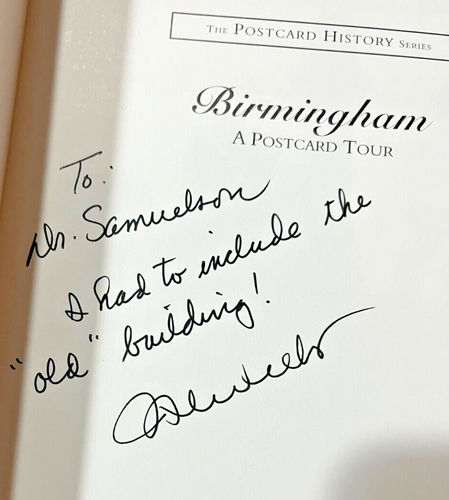 THE POSTCARD HISTORY SERIES
Birmingham
A POSTCARD TOUR
To:
Dr. Samuelson
I had to include the
"old" building!